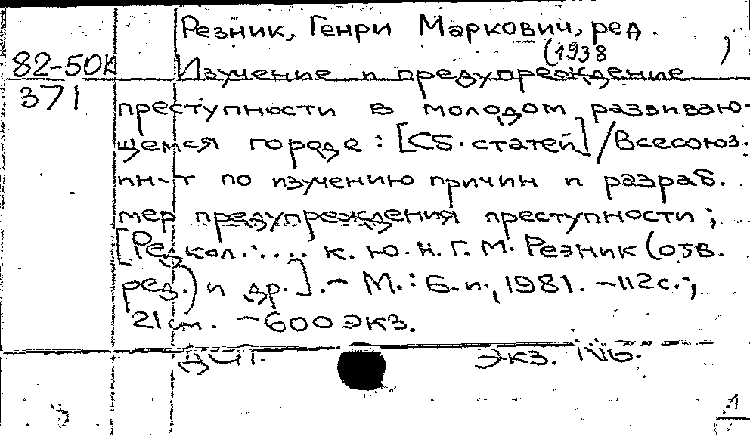 Резник, Генри Маркович, ред.
(1938 )
82-50К Изучение и предупреждение
371 преступности в молодом развиваю-
щемся городе : [Сб. статей] / Всесоюз.
ин-т по изучению причин и разраб.
мер предупреждения преступности ;
[Редкол.: ... к. ю. н. Г. М. Резник (отв.
ред.) и др.]. – М. : Б. и., 1981. – 112 с. ;
21 см. – 600 экз.
экз.
1